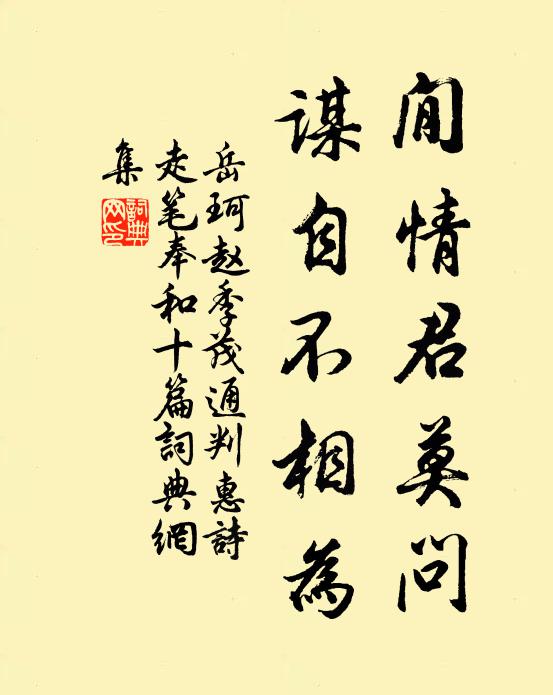 閒情君莫問
謀自不相為
岳珂赵季茂通判惠詩
走笔奉和十篇詞典網
集
詞典
网印